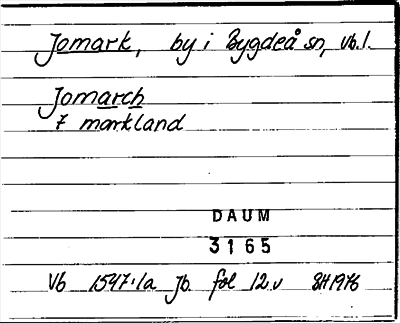 Jomark, by i Bygdeå sn, Vb.l.
Jomarch
7 markland
DAUM
3165
Vb 1547:1a Jb fol 12.v SH 1976